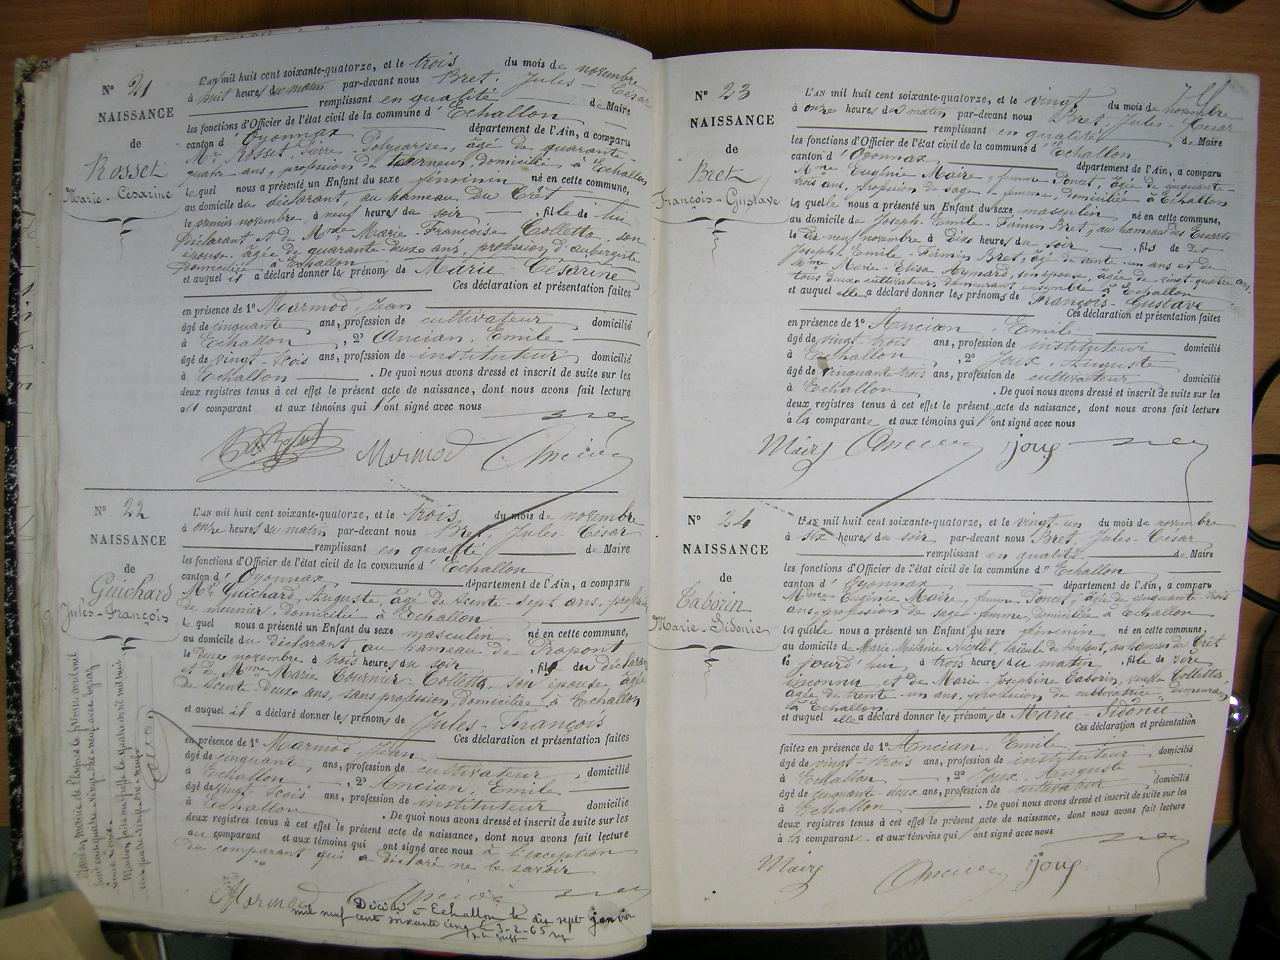 N° 21
NAISSANCE
de
Rosset
Marie-Césarine
L'an mil huit cent soixante-quatorze, et le trois du mois de novembre
à huit heures du matin par-devant nous Bret, Jules-César
remplissant en qualité de Maire
les fonctions d'Officier de l'état civil de la commune d'Echallon
canton d'Oyonnax département de l'Ain, a comparu
Mr Rosset, Pierre Polycarpe, âgé de quarante-
quatre ans, profession de tourneur, domicilié à Echallon
lequel nous a présenté un Enfant du sexe féminin né en cette commune,
au domicile du déclarant, au hameau du Crêt
le premier novembre, à neuf heures du soir, fille de lui
déclarant et de Mme Marie-Françoise Colletta, son
épouse, âgée de quarante deux ans, profession d'aubergiste
domiciliée à Echallon
et auquel il a déclaré donner les prénoms de Marie-Césarine
Ces déclaration et présentation faites
en présence de 1° Marmod, Jean
âgé de cinquante ans, profession de cultivateur, domicilié
à Echallon, 2° Ancian, Emile
âgé de vingt-trois ans, profession de instituteur domicilié
à Echallon. De quoi nous avons dressé et inscrit de suite sur les
deux registres tenus à cet effet le présent acte de naissance, dont nous avons fait lecture
au comparant et aux témoins qui l'ont signé avec nous
Marmod Ancian
N° 22
NAISSANCE
de
Guichard
Jules-François
L'an mil huit cent soixante-quatorze, et le trois du mois de novembre
à onze heures du matin par-devant nous Bret, Jules-César
remplissant en qualité de Maire
les fonctions d'Officier de l'état civil de la commune d'Echallon
canton d'Oyonnax département de l'Ain, a comparu
Mr Guichard, Auguste, âgé de trente-sept ans, profession
de meunier, domicilié à Echallon
lequel nous a présenté un Enfant du sexe masculin né en cette commune,
au domicile du déclarant, au hameau de Trapont
le deux novembre à trois heures du soir, fils du déclarant
et de Mme Marie Tournier-Colletta, son épouse, âgée
de trente deux ans, sans profession, domiciliée à Echallon
et auquel il a déclaré donner les prénoms de Jules-François
Ces déclaration et présentation faites
en présence de 1° Marmod Jean
âgé de cinquante ans, profession de cultivateur, domicilié
à Echallon, 2° Ancian Emile
âgé de vingt trois ans, profession de instituteur domicilié
à Echallon. De quoi nous avons dressé et inscrit de suite sur les
deux registres tenus à cet effet le présent acte de naissance, dont nous avons fait lecture
au comparant et aux témoins qui l'ont signé avec nous à l'exception
du comparant qui a déclaré ne le savoir
Marmod Ancian
Décédé à Echallon le dix sept janvier
mil neuf cent soixante cinq le 3-2-65
N° 23
NAISSANCE
de
Bret
François-Gustave
L'an mil huit cent soixante-quatorze, et le vingt du mois de novembre
à onze heures du matin par-devant nous Bret, Jules-César
remplissant en qualité de Maire
les fonctions d'Officier de l'état civil de la commune d'Echallon
canton d'Oyonnax département de l'Ain, a comparu
Mme Eugénie Maire, femme Poncet, âgée de cinquante-
trois ans, profession de sage-femme, domiciliée à Echallon
laquelle nous a présenté un Enfant du sexe masculin né en cette commune,
au domicile de Joseph-Emile-Firmin Bret, au hameau des
le dix neuf novembre à dix heures du soir, fils de
Joseph Emile-Firmin Bret, âgé de trente un ans et de
Mme Marie-Elisa Aymard, son épouse, âgée de vingt-quatre ans,
tous deux cultivateurs, demeurant ensemble à Echallon
et auquel elle a déclaré donner les prénoms de François-Gustave
Ces déclaration et présentation faites
en présence de 1° Ancian, Emile
âgé de vingt-trois ans, profession de instituteur domicilié
à Echallon, 2° Joux, Auguste
âgé de cinquante trois ans, profession de cultivateur domicilié
à Echallon. De quoi nous avons dressé et inscrit de suite sur les
deux registres tenus à cet effet le présent acte de naissance, dont nous avons fait lecture
à la comparante et aux témoins qui l'ont signé avec nous
Ancian joux
N° 24
NAISSANCE
de
Taborin
Marie-Sidonie
L'an mil huit cent soixante-quatorze, et le vingt-un du mois de novembre
à six heures du soir par-devant nous Bret, Jules-César
remplissant en qualité de Maire
les fonctions d'Officier de l'état civil de la commune d'Echallon
canton d'Oyonnax département de l'Ain, a comparu
Mme Eugénie Maire, femme Poncet, âgée de cinquante trois
ans, profession de sage-femme, domiciliée à Echallon
laquelle nous a présenté un Enfant du sexe féminin né en cette commune,
au domicile de Marie-Mélanie Nicolet, aïeule de l'enfant, au hameau du Crêt
le jourd'hui, à trois heures du matin, fille de père
inconnu et de Marie-Joséphine Taborin, veuve Colletta
âgée de trente-un ans, profession de cultivatrice, demeurant
à Echallon
et auquel elle a déclaré donner les prénoms de Marie-Sidonie
Ces déclaration et présentation
faites en présence de 1° Ancian, Emile
âgé de vingt-trois ans, profession de instituteur, domicilié
à Echallon, 2° Joux, Auguste
âgé de cinquante deux ans, profession de cultivateur domicilié
à Echallon. De quoi nous avons dressé et inscrit de suite sur les
deux registres tenus à cet effet le présent acte de naissance, dont nous avons fait lecture
à la comparante et aux témoins qui l'ont signé avec nous
Ancian joux